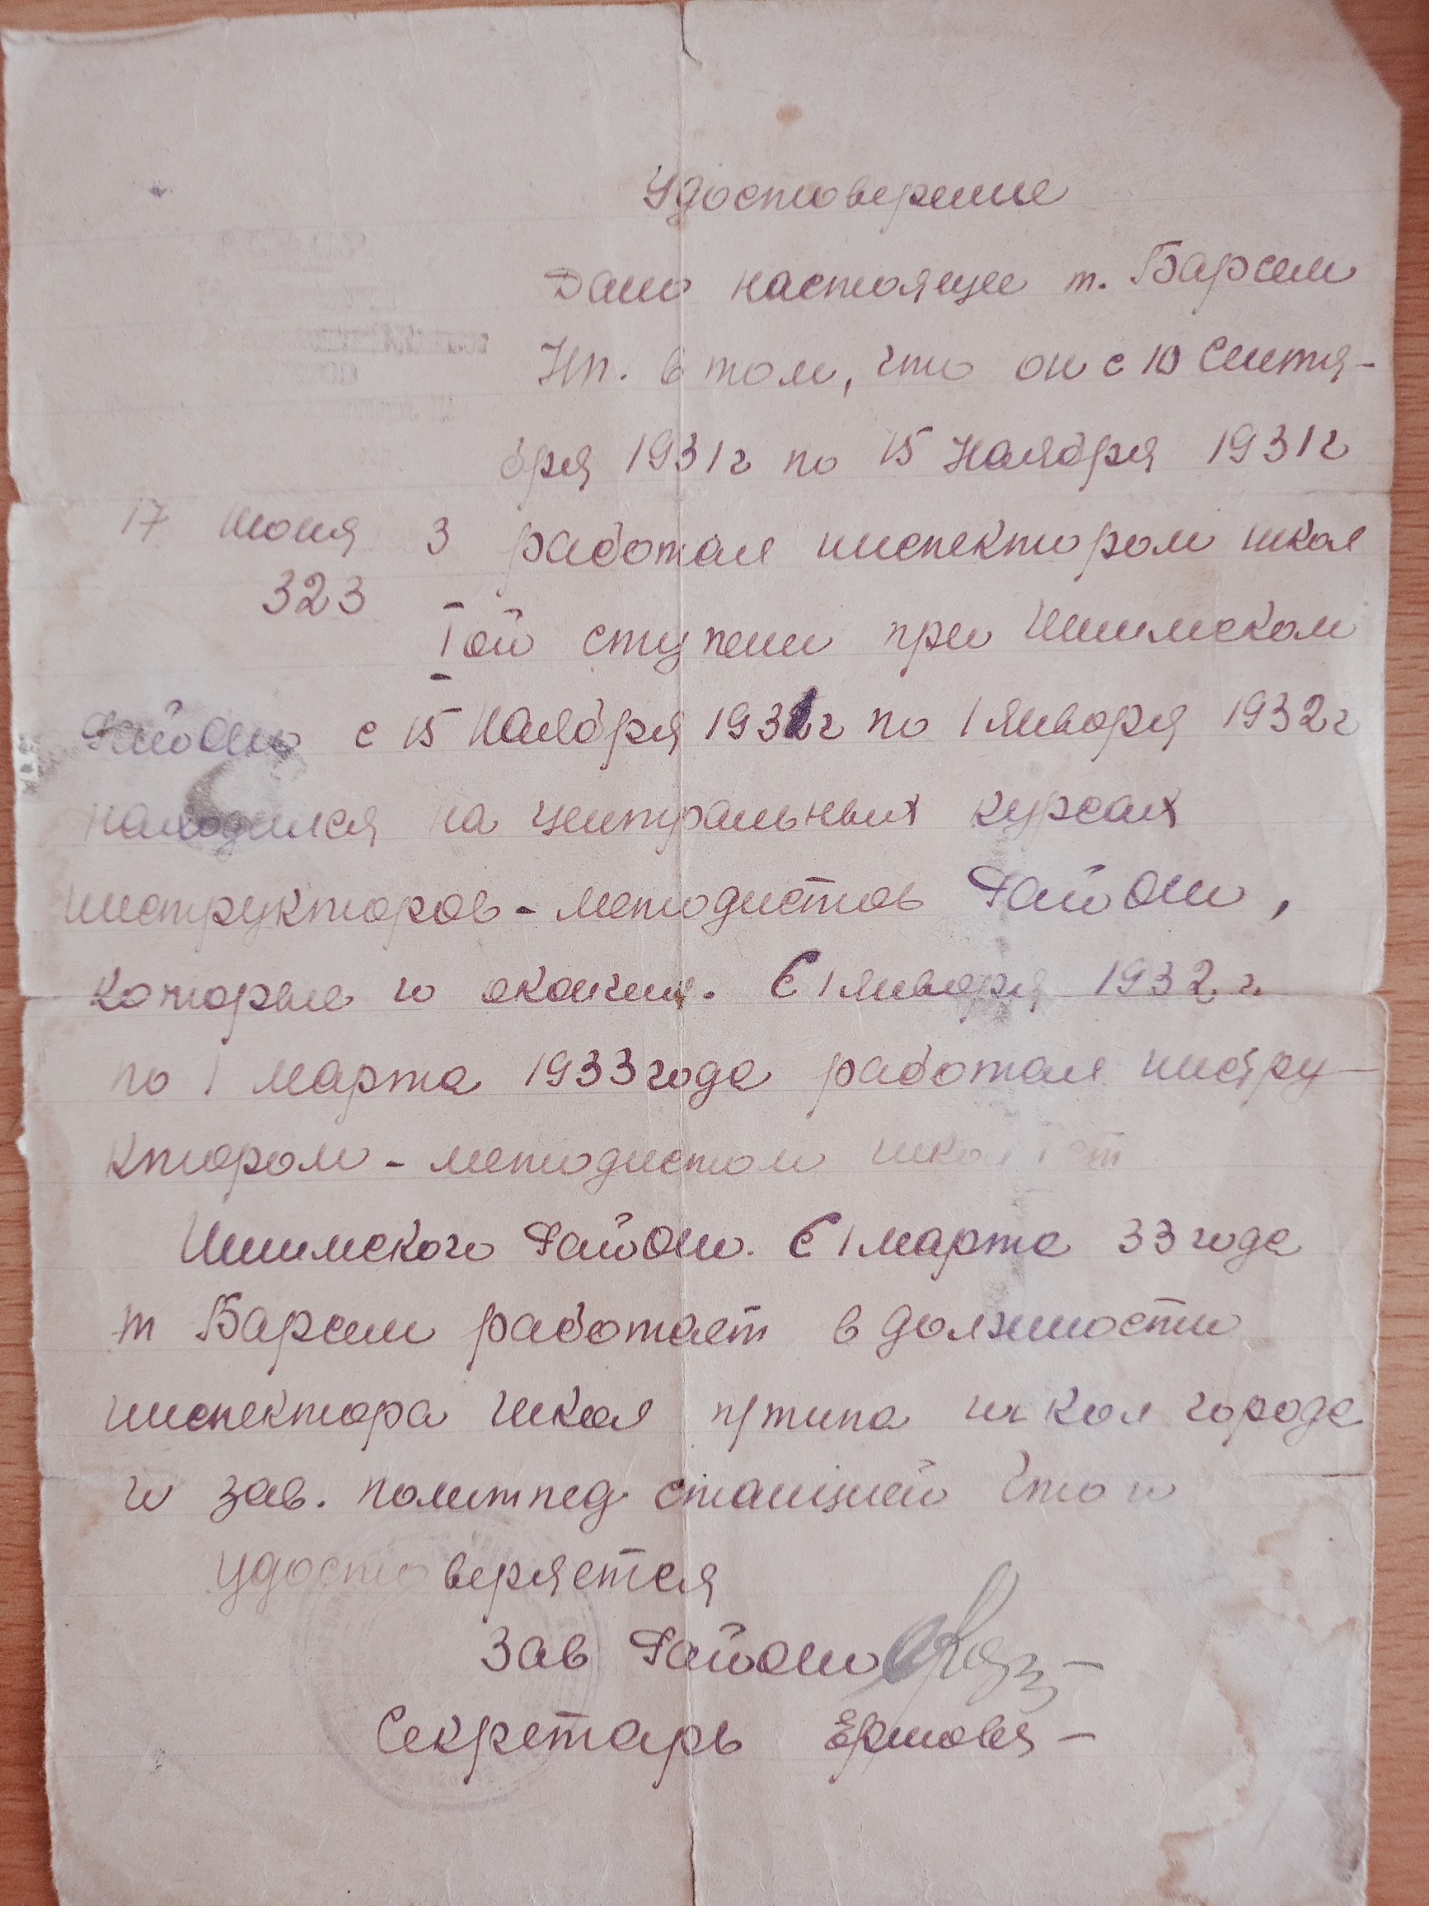 Удостоверение
Дано настоящее т. Барсем
Ип. в том, что он с 10 Сентя-
бря 1931г по 15 Ноября 1931г
17 июня 3 работал инспектором школ
323
Iой ступени при Ишимском
РайОно с 15 Ноября 1931г по 1 Января 1932г
находился на центральных курсах
инструкторов-методистов РайОно,
которые и окончил. С 1 января 1932 г.
по 1 марта 1933 года работал инстру-
ктором-методистом школ I ст
Ишимского РайОно. С 1 марта 33 года
т Барсем работает в должности
инспектора школ п/типа школ города
и зав. политпед станцией что и
удостоверяется
Зав РайОно
Секретарь Ершова